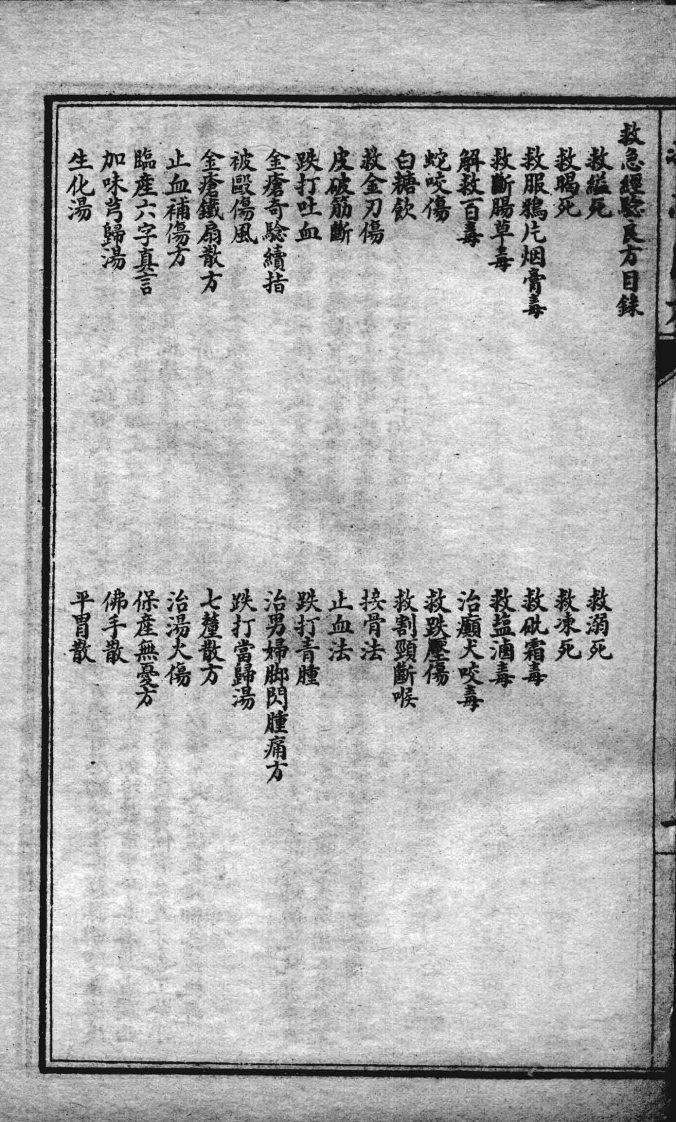 救急經驗良方目錄
救縊死
救溺死
救暍死
救凍死
救服鴉片烟膏毒
救砒霜毒
救斷腸草毒
救塩滷毒
解救百毒
治癲犬咬毒
蛇咬傷
救跌壓傷
白糖飲
救割頸斷喉
救金刃傷
接骨法
皮破筋斷
止血法
跌打吐血
跌打青腫
金瘡奇驗續指
治男婦脚閃腫痛方
被毆傷風
跌打當歸湯
金瘡鐵扇散方
七釐散方
止血補傷方
治湯火傷
臨産六字真言
保産無憂方
加味芎歸湯
佛手散
生化湯
平胃散